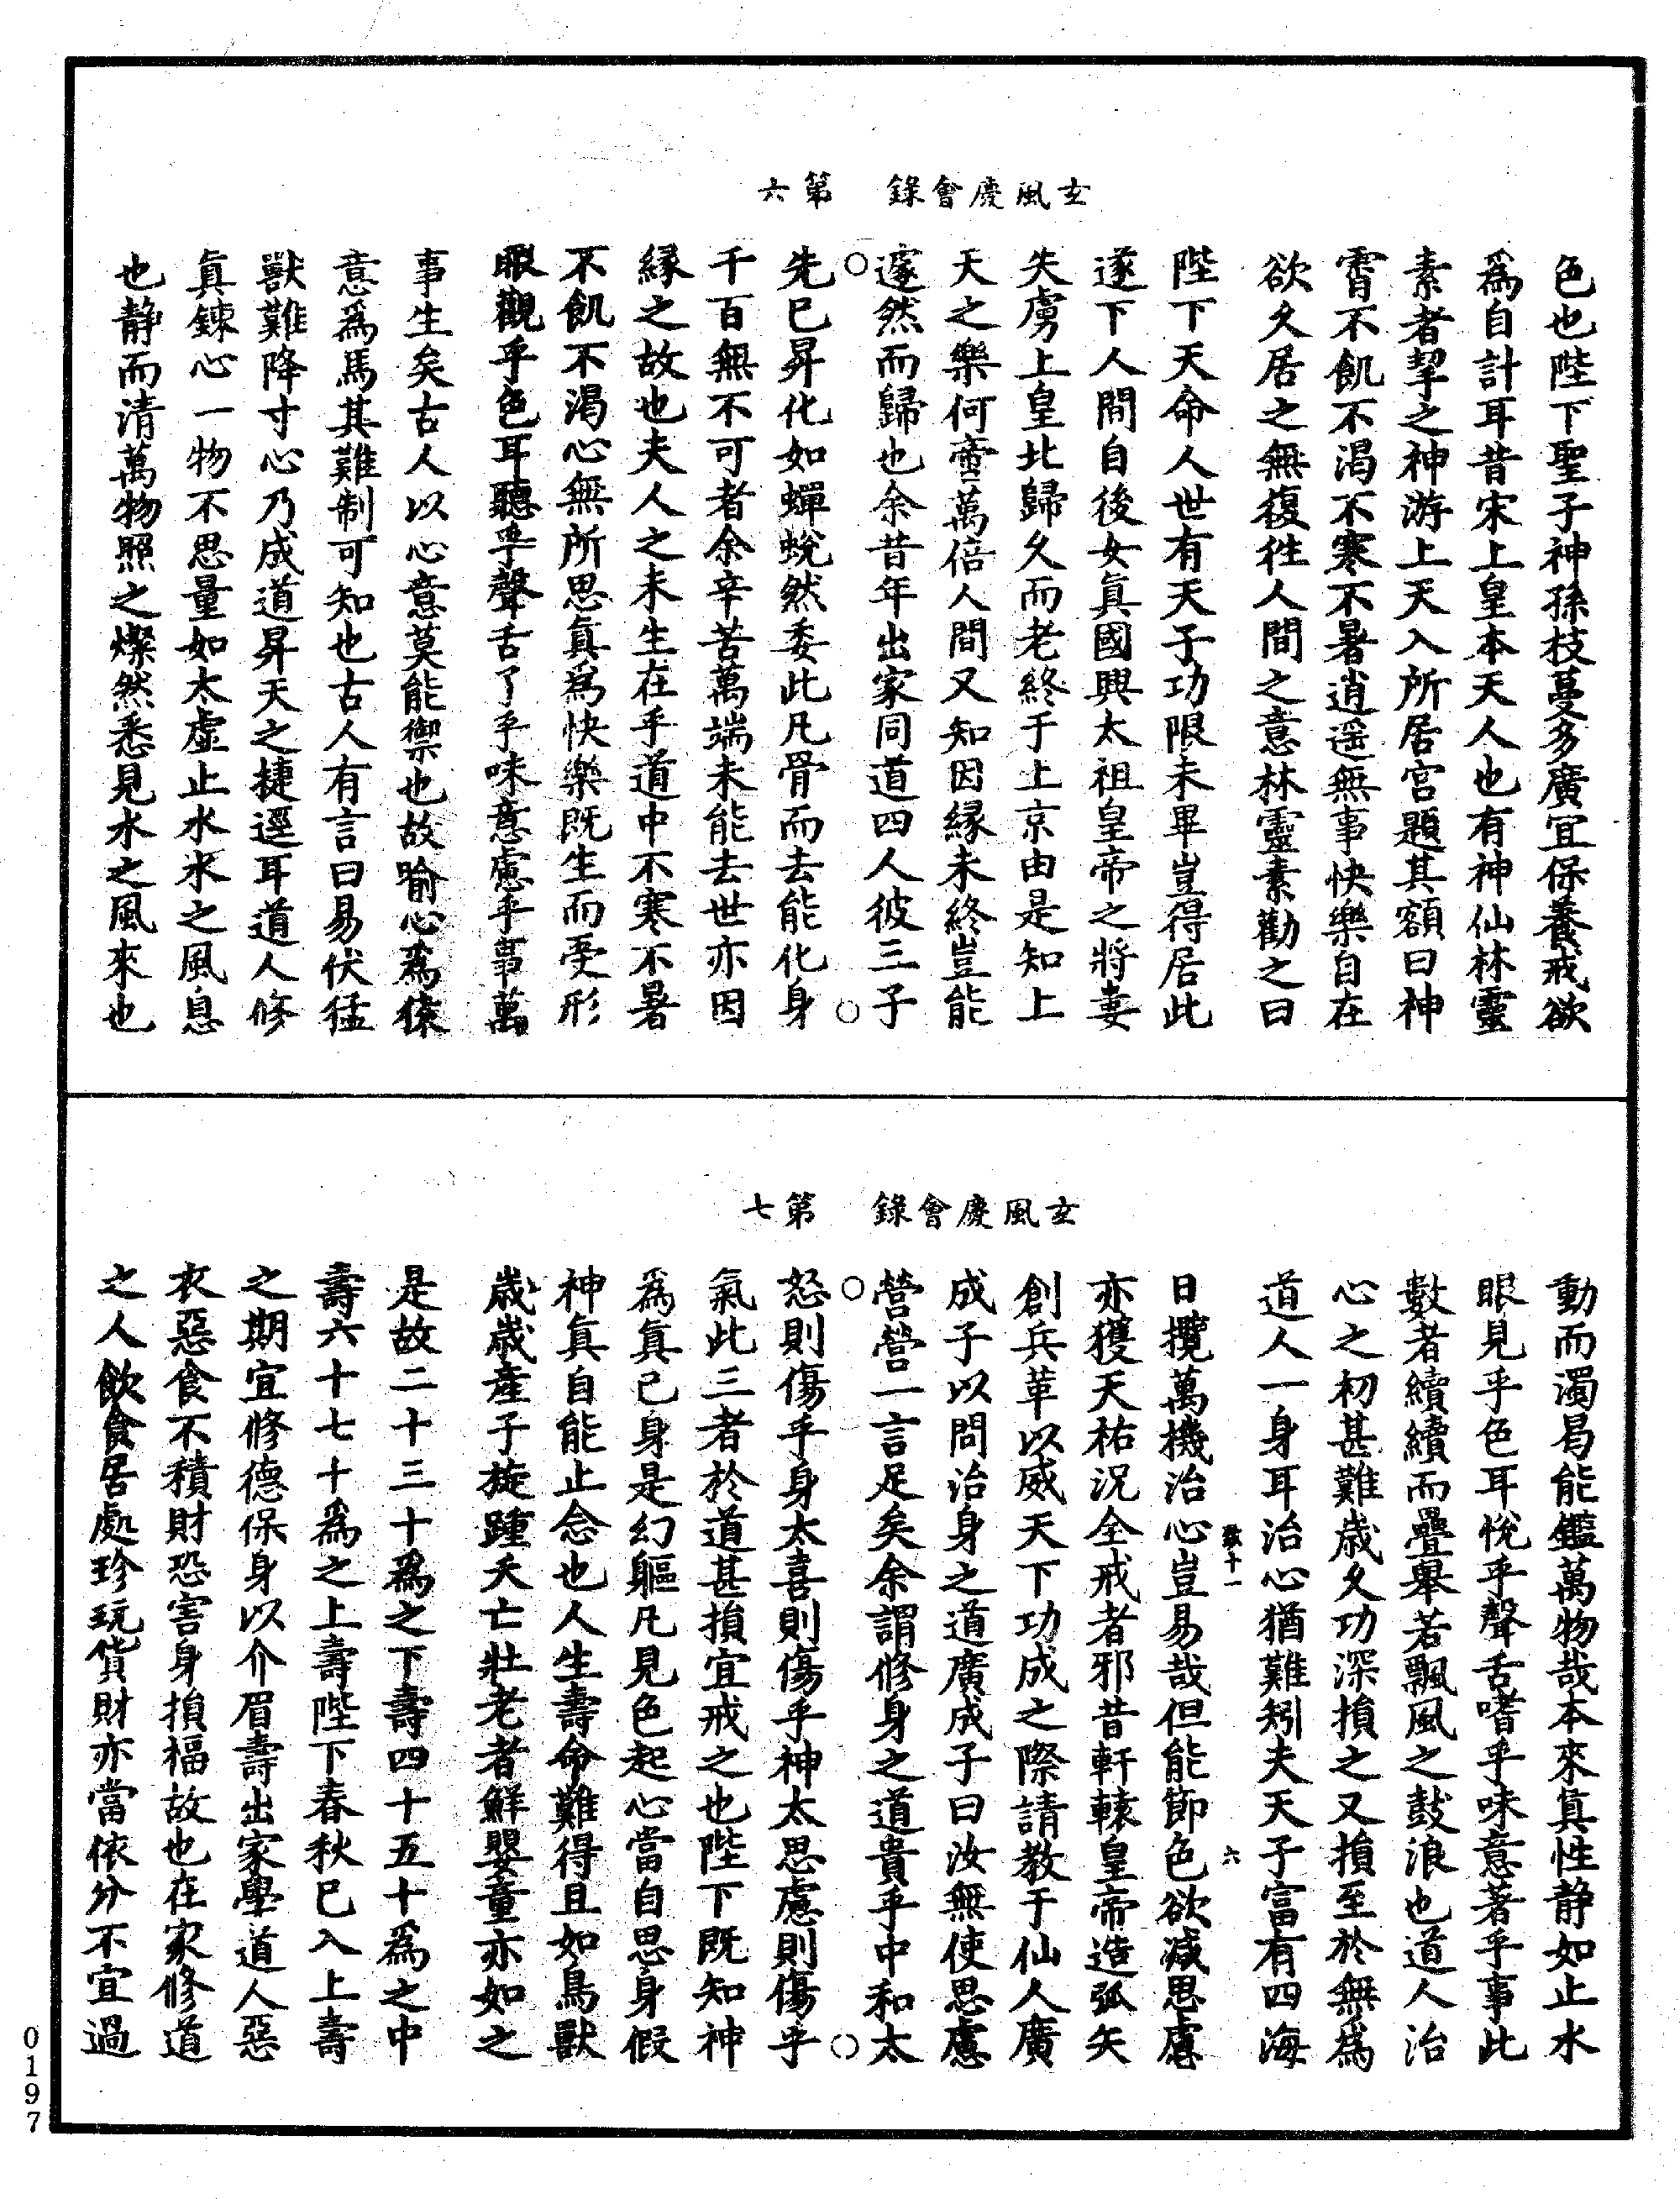 玄風慶會錄　第六
色也陛下聖子神孫枝蔓多廣宜保養戒欲
爲自計耳昔宋上皇本天人也有神仙林靈
素者挈之神游上天入所居宮題其額曰神
霄不飢不渴不寒不暑逍遥無事快樂自在
欲久居之無復徃人間之意林靈素勸之曰
陛下天命人世有天子功限未畢豈得居此
遂下人間自後女眞國興太祖皇帝之將婁
失虜上皇北歸久而老終于上京由是知上
天之樂何啻萬倍人間又知因緣未終豈能
遽然而歸也余昔年出家同道四人彼三子
先已昇化如蟬蛻然委此凡骨而去能化身
千百無不可者余辛苦萬端未能去世亦因
緣之故也夫人之未生在乎道中不寒不暑
不飢不渴心無所思眞爲快樂既生而受形
眼觀乎色耳聽乎聲舌了乎味意慮乎事萬
事生矣古人以心意莫能禦也故喻心爲猿
意爲馬其難制可知也古人有言曰易伏猛
獸難降寸心乃成道昇天之捷逕耳道人修
眞鍊心一物不思量如太虛止水水之風息
也靜而清萬物照之燦然悉見水之風來也
玄風慶會錄　第七
動而濁曷能鑑萬物哉本來眞性靜如止水
眼見乎色耳悅乎聲舌嗜乎味意著乎事此
數者續續而疊舉若飄風之鼓浪也道人治
心之初甚難歳久功深損之又損至於無爲
道人一身耳治心猶難矧夫天子富有四海
致十一　六
日攬萬機治心豈易哉但能節色欲減思慮
亦獲天祐況全戒者邪昔軒轅皇帝造弧矢
創兵革以威天下功成之際請教于仙人廣
成子以問治身之道廣成子曰汝無使思慮
營營一言足矣余謂修身之道貴乎中和太
怒則傷乎身太喜則傷乎神太思慮則傷乎
氣此三者於道甚損宜戒之也陛下既知神
爲眞己身是幻軀凡見色起心當自思身假
神眞自能止念也人生壽命難得且如鳥獸
歳歳產子旋踵夭亡壯老者鮮嬰童亦如之
是故二十三十爲之下壽四十五十爲之中
壽六十七十爲之上壽陛下春秋已入上壽
之期宜修德保身以介眉壽出家學道人惡
衣惡食不積財恐害身損福故也在家修道
之人飲食居處珍玩貨財亦當依分不宜過
0197